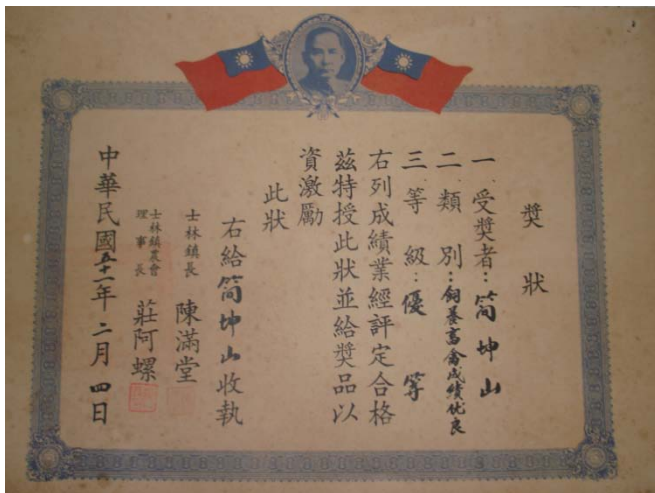 獎狀
一、受獎者：简坤山
二、類別：飼養畜禽成績优良
三、等級：優等
右列成績業經評定合格
茲特授此狀並給獎品以
資激勵
此狀
右給简坤山收執
士林鎮長 陳滿堂
士林鎮農會
理事長 莊阿螺
中華民國五十一年二月四日